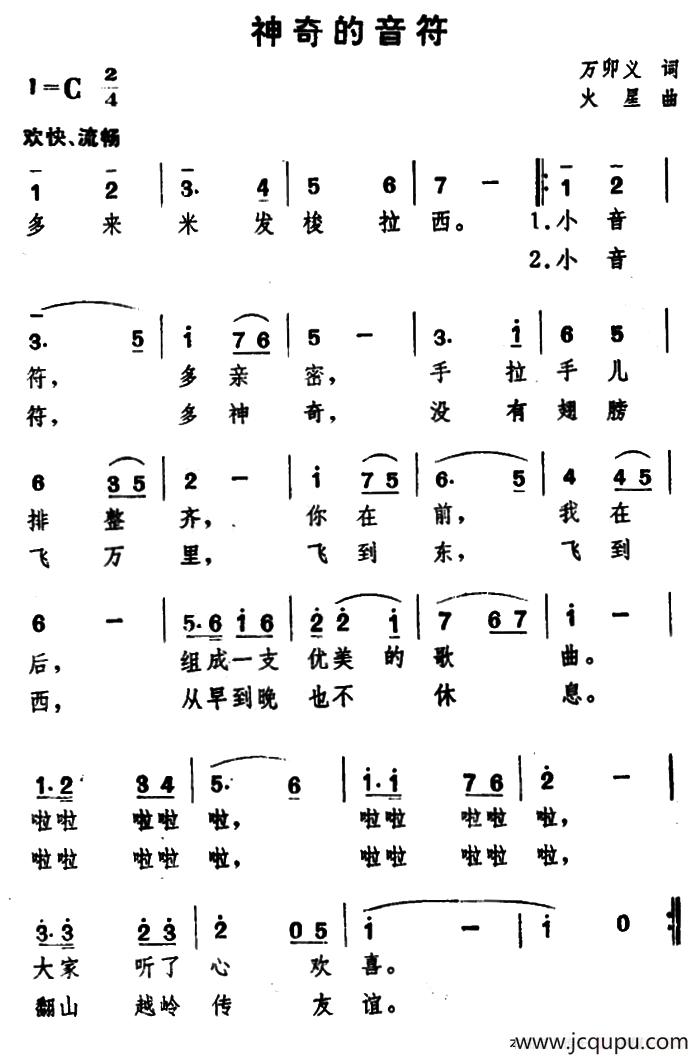 神奇的音符
1=C 2/4
万卯义 词
火星 曲
欢快、流畅
1 2 | 3. 4 | 5 6 | 7 — |: 1 2 |
多来米发梭拉西。 1.小音
2.小音
3. 5 | i 7 6 | 5 — | 3. i | 6 5 |
符, 多亲密, 手拉手儿
符, 多神奇, 没有翅膀
6 3 5 | 2 — | i 7 5 | 6. 5 | 4 4 5 |
排整齐, 你在前, 我在
飞万里, 飞到东, 飞到
6 — | 5. 6 i 6 | 2 2 i | 7 6 7 | i — |
后, 组成一支优美的歌曲。
西, 从早到晚也不休息。
1. 2 3 4 | 5. 6 | i. i 7 6 | 2 — |
啦啦 啦啦 啦, 啦啦 啦啦 啦,
啦啦 啦啦 啦, 啦啦 啦啦 啦,
3. 3 2 3 | 2 0 5 | i — | i 0 :|
大家听了心欢喜。
翻山越岭传友谊。
www.jcqupu.com